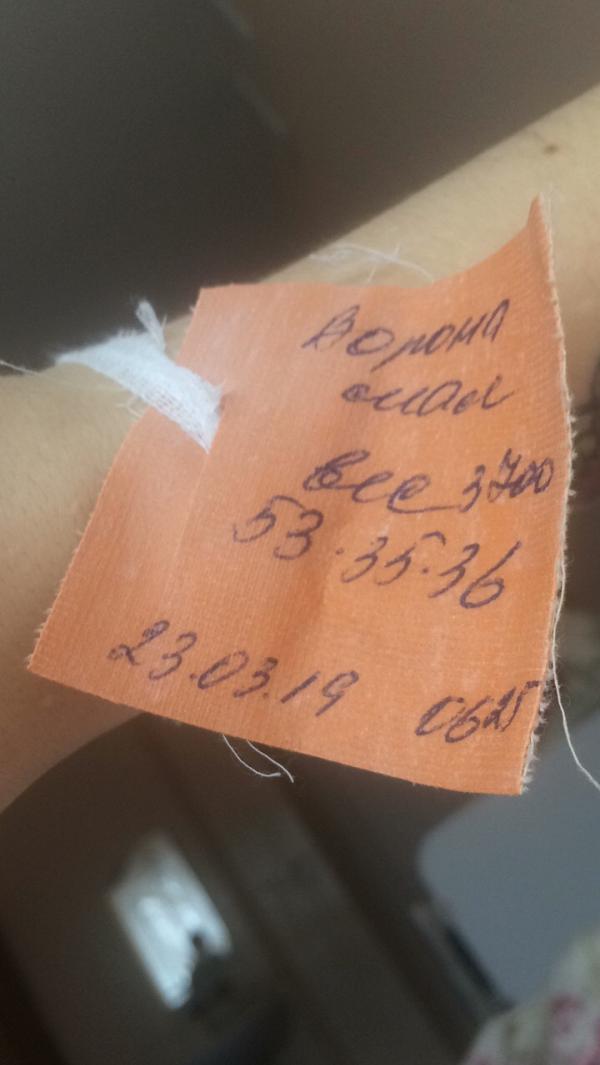 вес 3700
53.35.36
23.03.19 0625